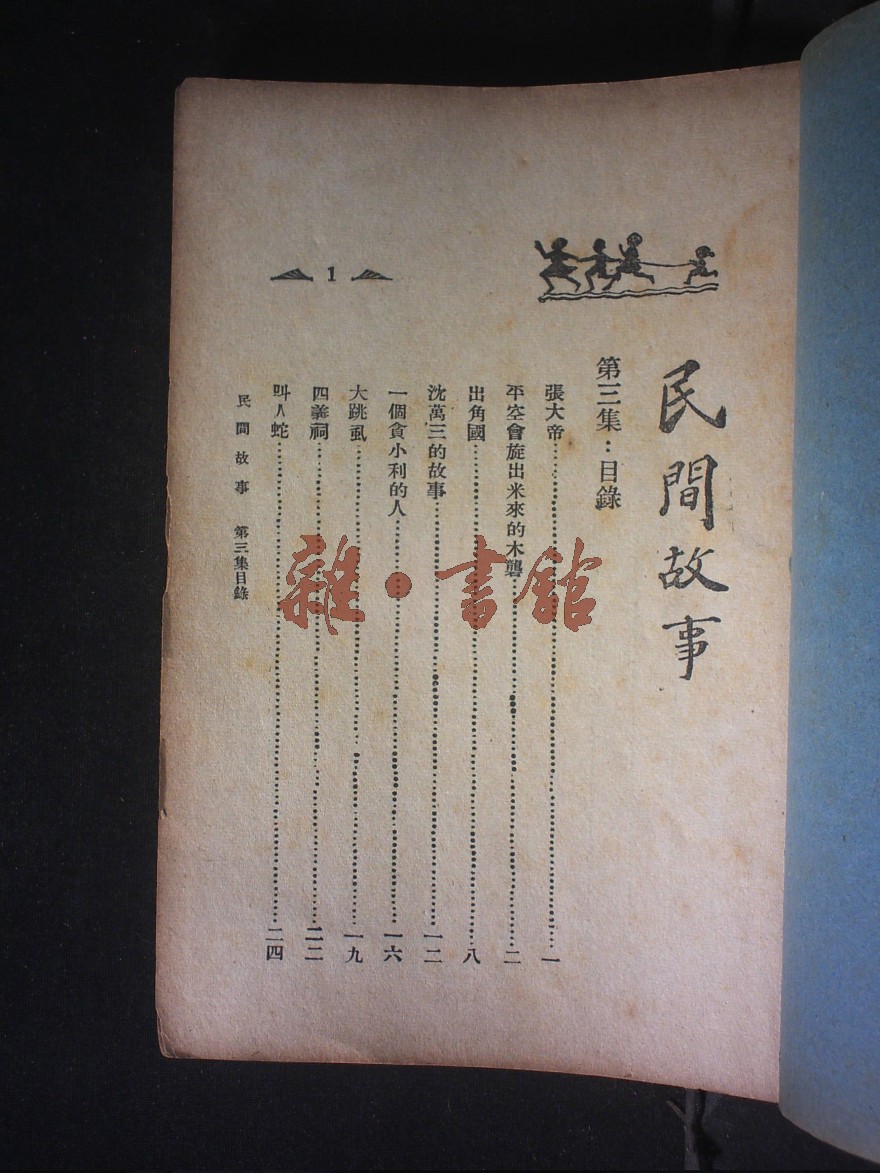 民間故事
第三集：目錄
張大帝…………一
平空會旋出米來的木礱…………二
出角國…………八
沈萬三的故事…………一二
一個貪小利的人…………一六
大跳虱…………一九
四義祠…………二二
叫人蛇…………二四
民間故事 第三集目錄
1
雜·書館